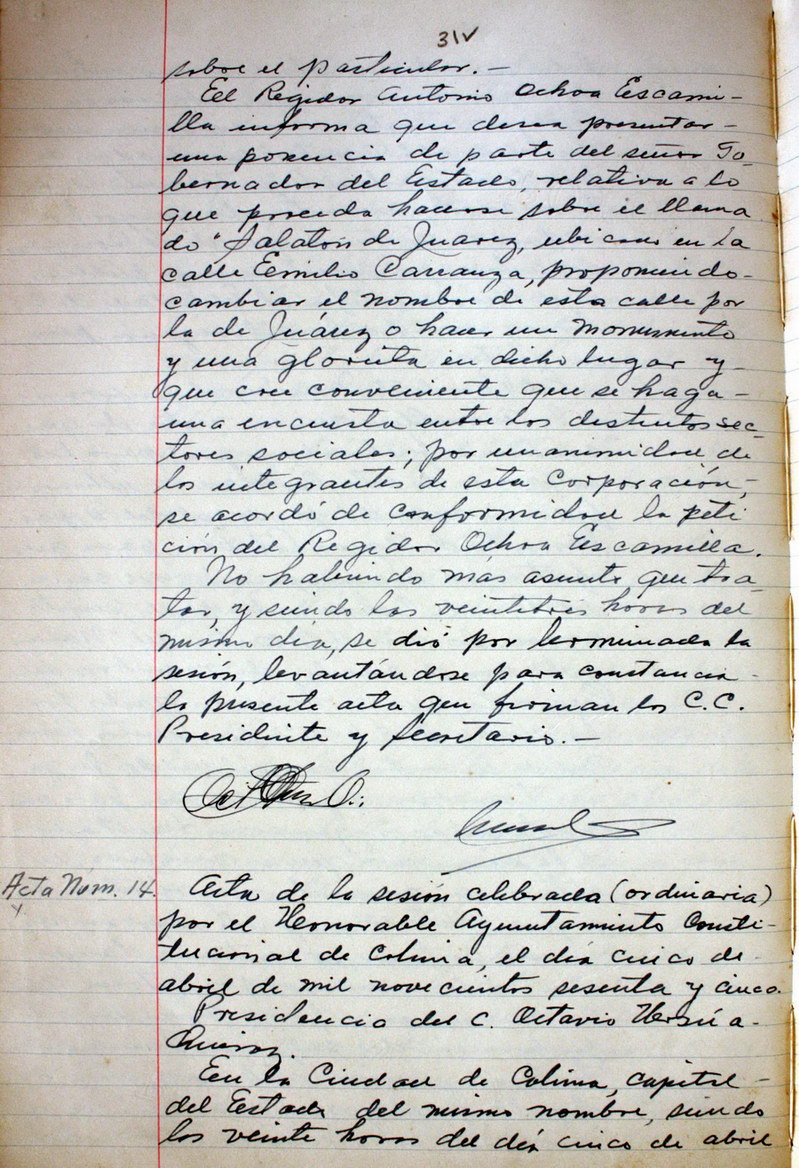 31V
sobre el particular.-
Eel Regidor Antonio Ochoa Escami-
lla informa que desea presentar-
una ponencia de parte del señor Go-
bernador del Estado, relativa a lo
que proceda hacerse sobre el llama
do "Salatón de Juárez, ubicado en la
calle Emilio Carranza, proponiendo-
cambiar el nombre de esta calle por
la de Juárez o hacer un monumento
y una glorieta en dicho lugar y-
que cree conveniente que se haga-
una encuesta entre los distintos sec-
tores sociales; por unanimidad de
los integrantes de esta Corporación,-
se acordó de conformidad la peti
ción del Regidor Ochoa Escamilla.
No habiendo más asunto que tra-
tar, y siendo las veintitrés horas del
mismo día, se dió por terminada la
sesión, levantándose para constancia-
la presente acta que firman los C.C.
Presidente y Secretario.-
Acta Núm. 14.
Acta de la sesión celebrada (ordinaria)
por el Honorable Ayuntamiento Consti-
tucional de Colima, el día cinco de-
abril de mil novecientos sesenta y cinco.
Presidencia del C. Octavio
En la Ciudad de Colima, capital-
del Estado del mismo nombre, siendo
las veinte horas del día cinco de abril